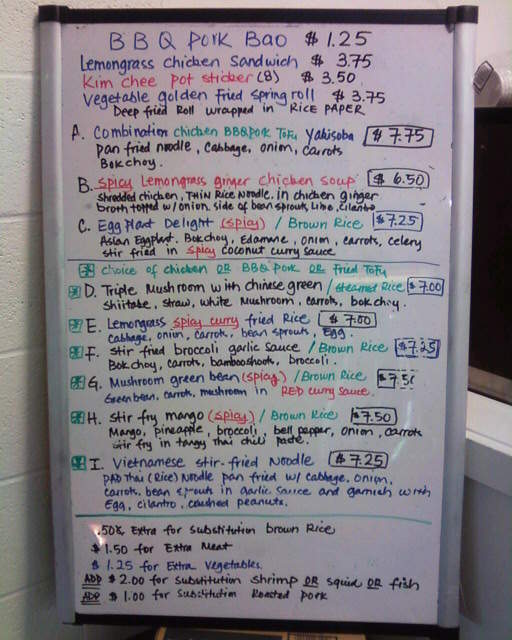 BBQ Pork Bao $1.25
Lemongrass chicken Sandwich $3.75
Kim chee pot sticker (8) $3.50
Vegetable golden fried spring roll $3.75
Deep fried Roll wrapped in RICE PAPER
A. Combination chicken BBQ pork Tofu Yakisoba $7.75
pan fried noodle, Cabbage, onion, carrots
Bok choy.
B. Spicy Lemongrass ginger chicken soup $6.50
Shredded chicken, THIN Rice Noodle. in chicken ginger
broth topped w/ onion, side of bean sprouts, Lime, cilantro
C. Egg Plant Delight (spicy) / Brown Rice $7.25
Asian Eggplant, Bok choy, Edamme, onion, carrots, celery
stir fried in spicy coconut curry sauce
* choice of chicken OR BBQ pork OR fried Tofu
* D. Triple Mushroom with chinese green / steamed Rice $7.00
shiitake, straw, white Mushroom, carrots, bok choy.
* E. Lemongrass spicy curry fried Rice $7.00
cabbage, onion, carrots, bean sprouts, Egg.
* F. Stir fried broccoli garlic sauce / Brown Rice $7.25
Bok choy, carrots, bambooshoots, broccoli.
* G. Mushroom green bean (spicy) / Brown Rice $7.50
Green bean, carrots, mushroom in RED curry sauce.
* H. Stir fry mango (spicy) / Brown Rice $7.50
Mango, pineapple, broccoli, bell pepper, onion, carrots
stir fry in tangy Thai chili paste.
* I. Vietnamese stir-fried Noodle $7.25
PAD Thai (Rice) Noodle pan fried w/ cabbage, onion,
carrots, bean sprouts in garlic sauce and garnish with
Egg, cilantro, crushed peanuts.
.50¢ Extra for substitution brown Rice
$1.50 for Extra Meat
$1.25 for Extra Vegetables.
ADD $2.00 for substitution shrimp OR squid OR fish
ADD $1.00 for Substitution Roasted pork